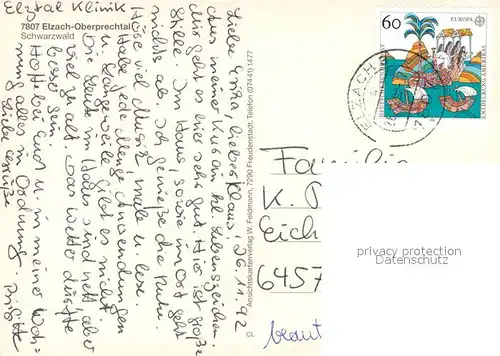 Elztal Klinik
7807 Elzach-Oberprechtal
Schwarzwald
26.11.92
Liebe Erika, lieber Klaus,
aus meiner Kur ein kl. Lebenszeichen.
Mir geht es hier sehr gut. Hier ist große
Stille. Im Haus, sowie im Ort geht
nichts ab. Ich genieße die Ruhe.
Höre viel Musik, male u. lese.
Habe jede Menge Anwendungen
u. Langeweile gibt es nicht.
Die Leute im Haus sind nett aber
viel zu alt. Das Wetter dürfte
besser sein.
Hoffe bei Euch u. in meiner Woh-
nung alles in Ordnung.
Liebe Grüße
Brigitte
CL
Ansichtskartenverlag W. Feldmann, 7290 Freudenstadt, Telefon (07441) 1477
60
EUROPA
DEUTSCHE BUNDESPOST
ENTDECKUNG AMERIKAS
ELZACH
Familie
K.
Eich
6457
privacy protection
Datenschutz